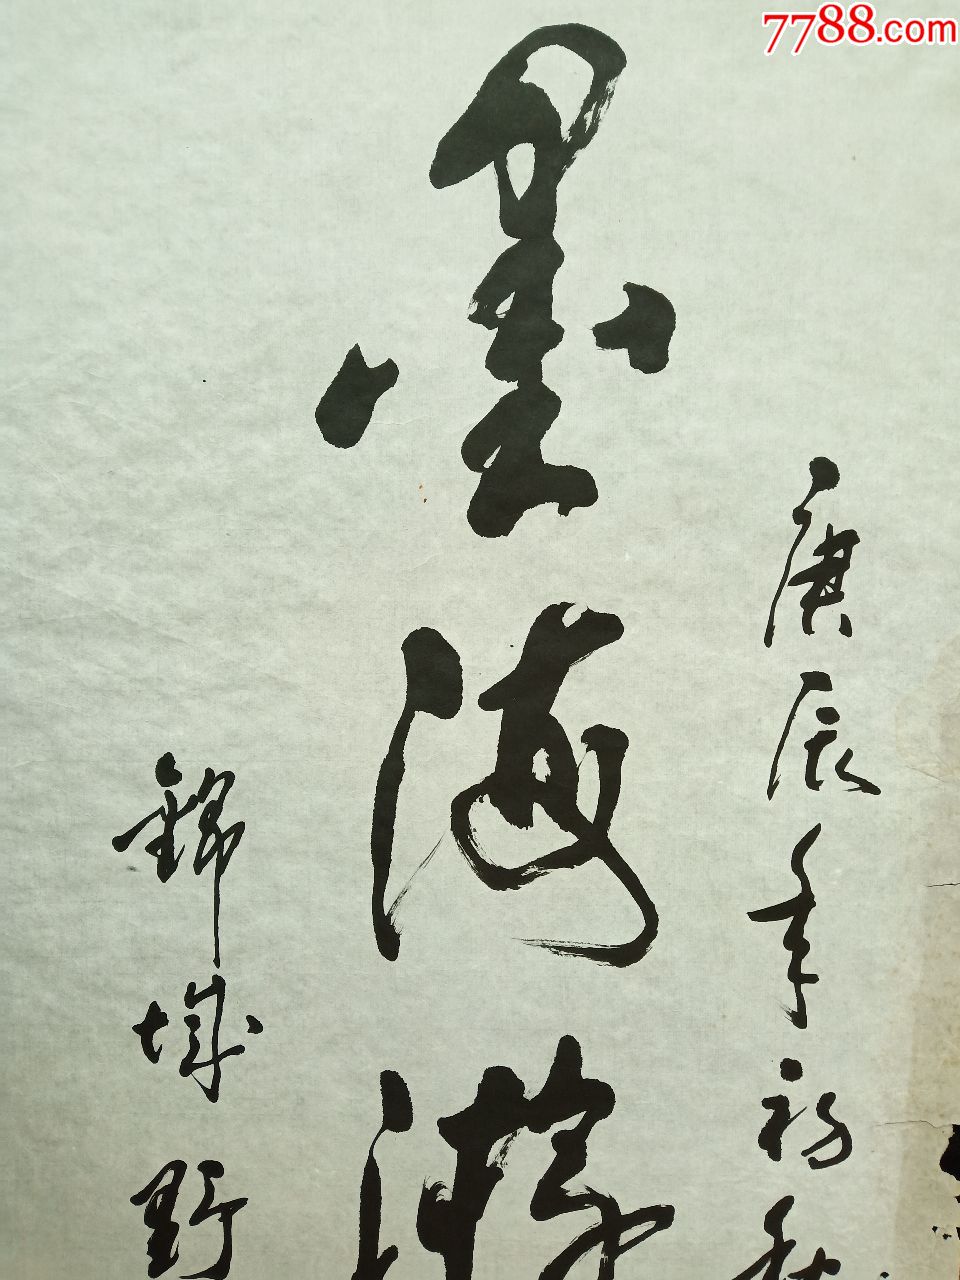 7788.com
庚辰年初秋
墨海游
錦城野